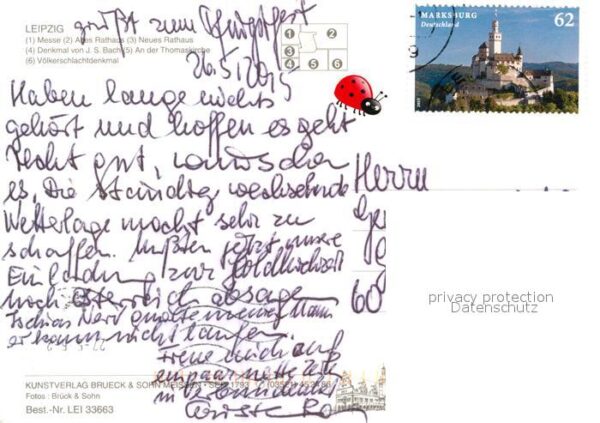 grüßt zum Pfingstfest
LEIPZIG
(1) Messe (2) Altes Rathaus (3) Neues Rathaus
(4) Denkmal von J. S. Bach (5) An der Thomaskirche
(6) Völkerschlachtdenkmal
1 2
3
4 5 6
26.5.2015
MARKSBURG
Deutschland
62
Haben lange nichts
gehört und hoffen es geht
recht gut, wünschen
es. Die ständig wechselnde
Wetterlage macht sehr zu
schaffen. Mußten jetzt unsere
Einladung zur Goldhochzeit
nach Österreich absagen
Ischias Nerv quälte meinen Mann
er kann nicht laufen.
Freue mich auf
ein paar nette Zeilen
in Verbundenheit
Herrn
60
privacy protection
Datenschutz
KUNSTVERLAG BRUECK & SOHN MEISSEN • SEIT 1793
Fotos: Brück & Sohn
Best.-Nr. LEI 33663